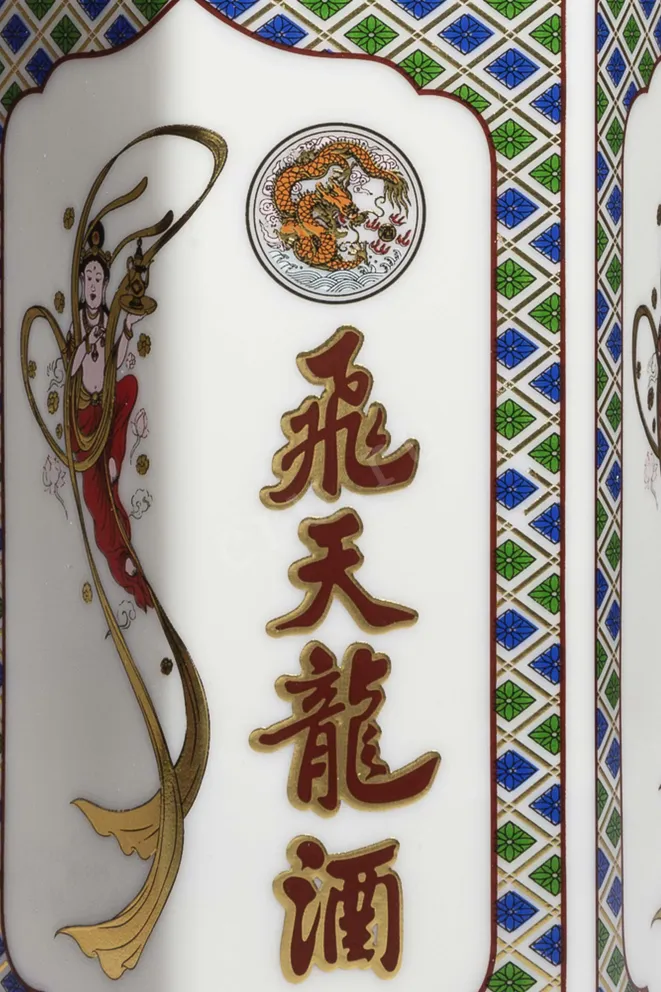 飛天龍酒